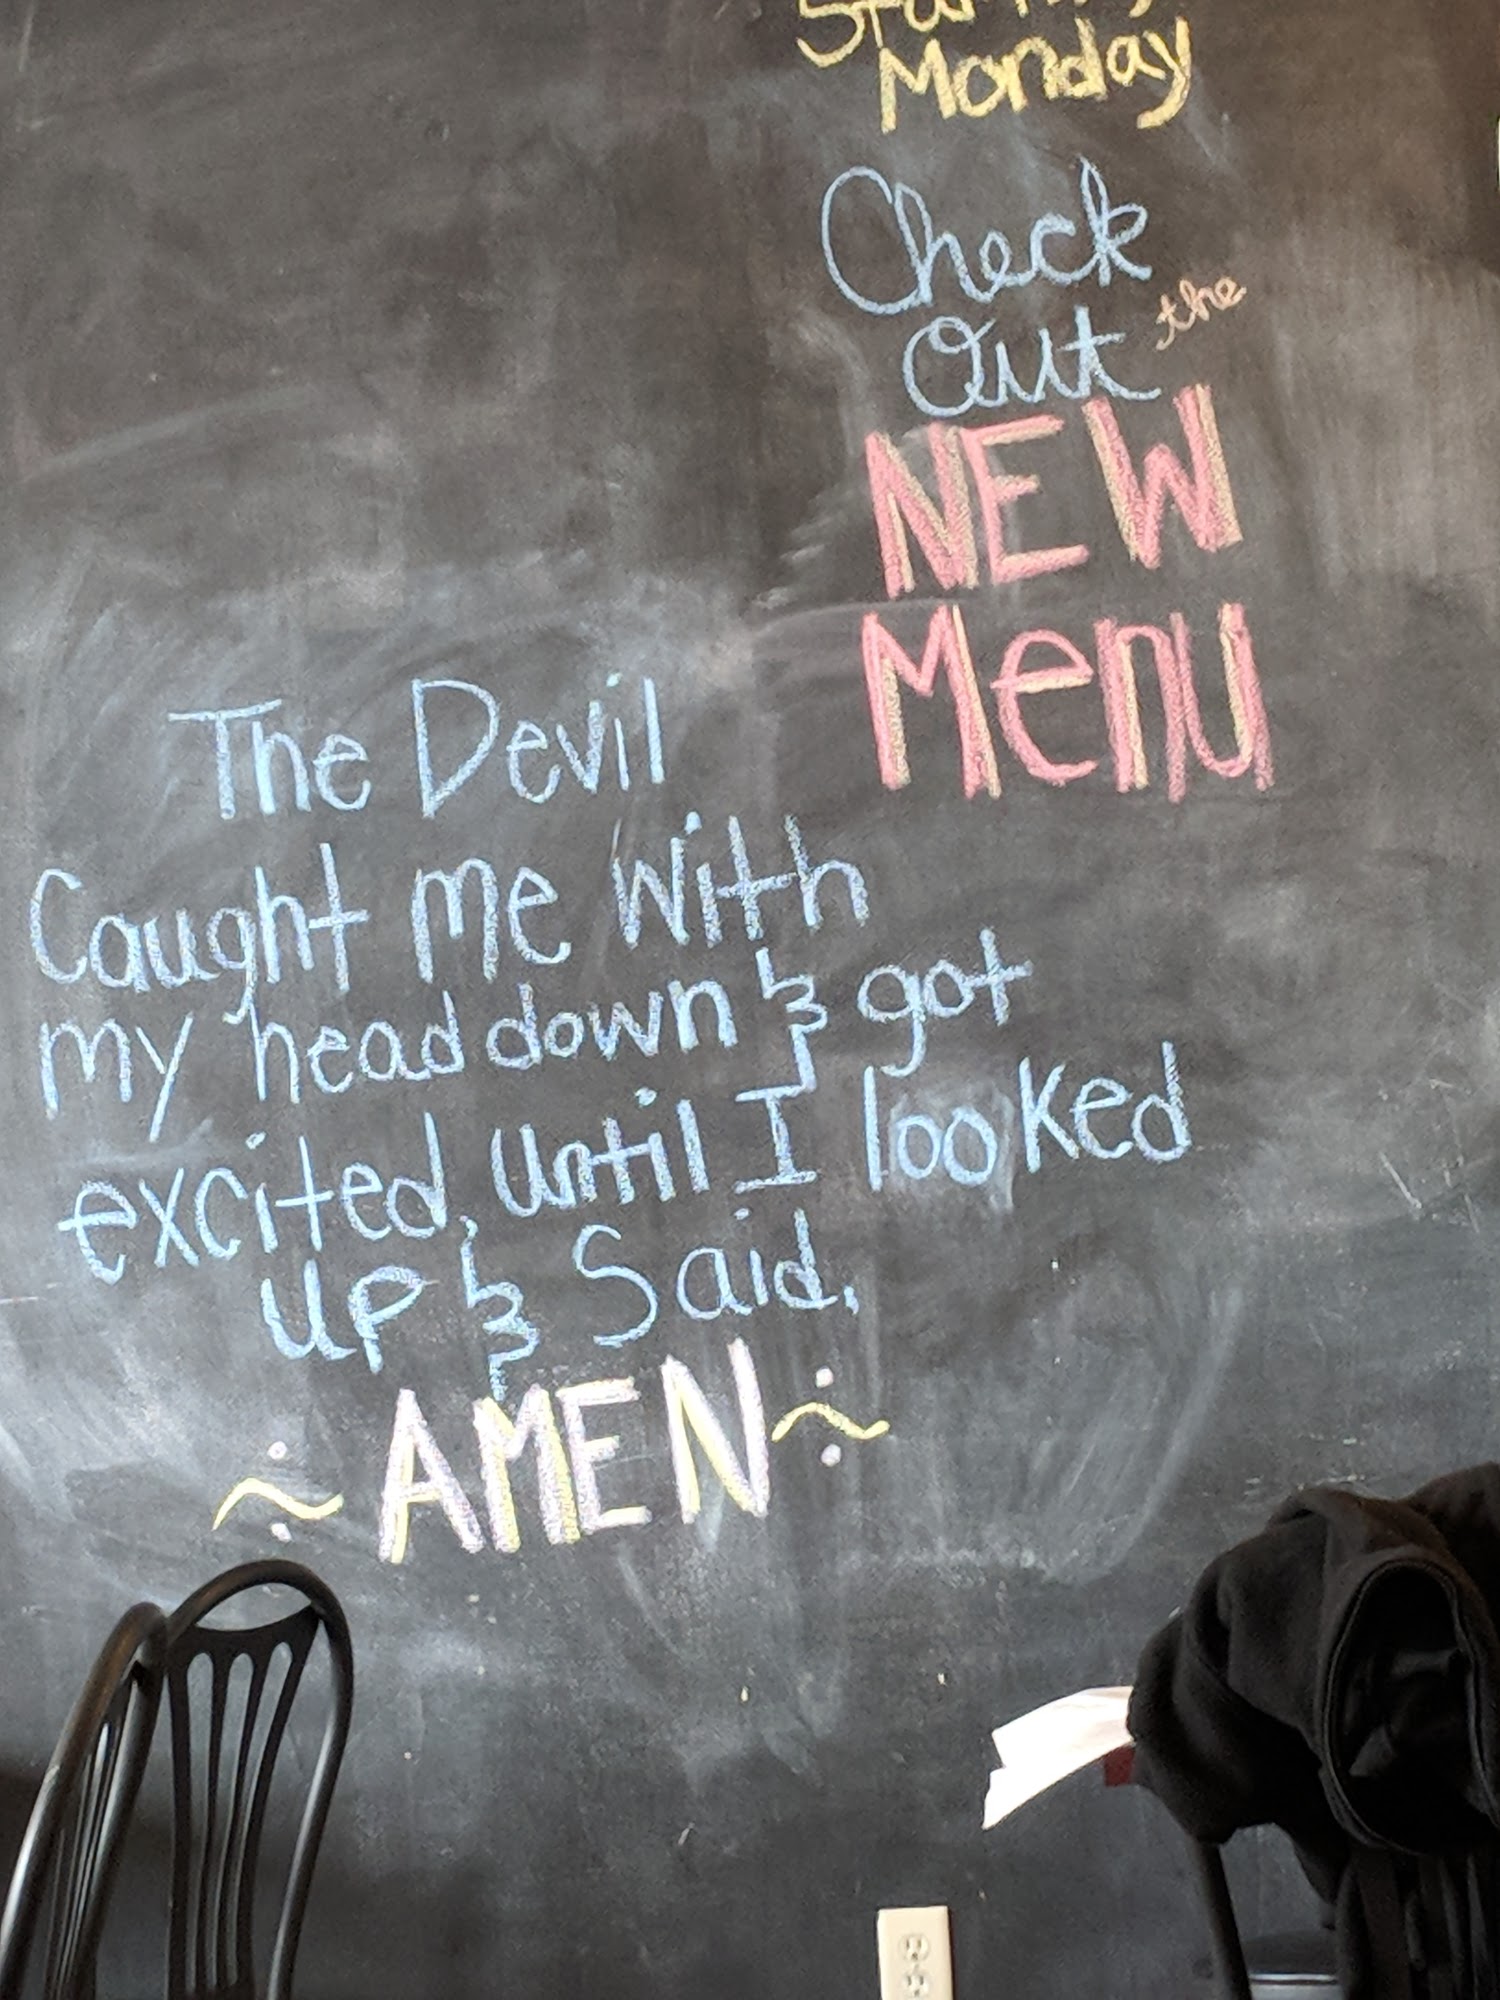 Monday
Check
Out the
NEW
Menu
The Devil
Caught me with
my head down & got
excited, until I looked
up & Said,
~ AMEN ~